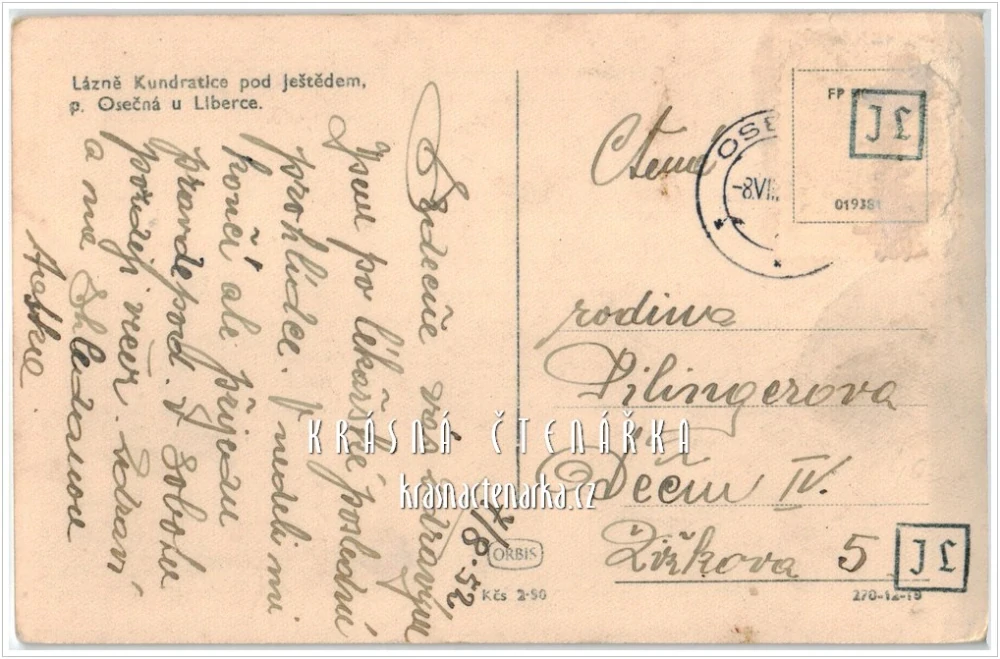 Lázně Kundratice pod Ještědem,
p. Osečná u Liberce.
Srdečně vás zdravím
Jsem po lékařské poslední
prohlídce. V neděli mi
končí ale přijedu
pravděpod. v sobotu
později večer. Zdraví
a na Shledanou
7/8.52
Ctená
rodina
Pilingerova
Děčín IV.
Žižkova 5
OSE
-8.VII
FP
019381
JL
JL
KRÁSNÁ ČTENÁŘKA
krasnactenarka.cz
ORBIS
Kčs 2·90
270-12-19